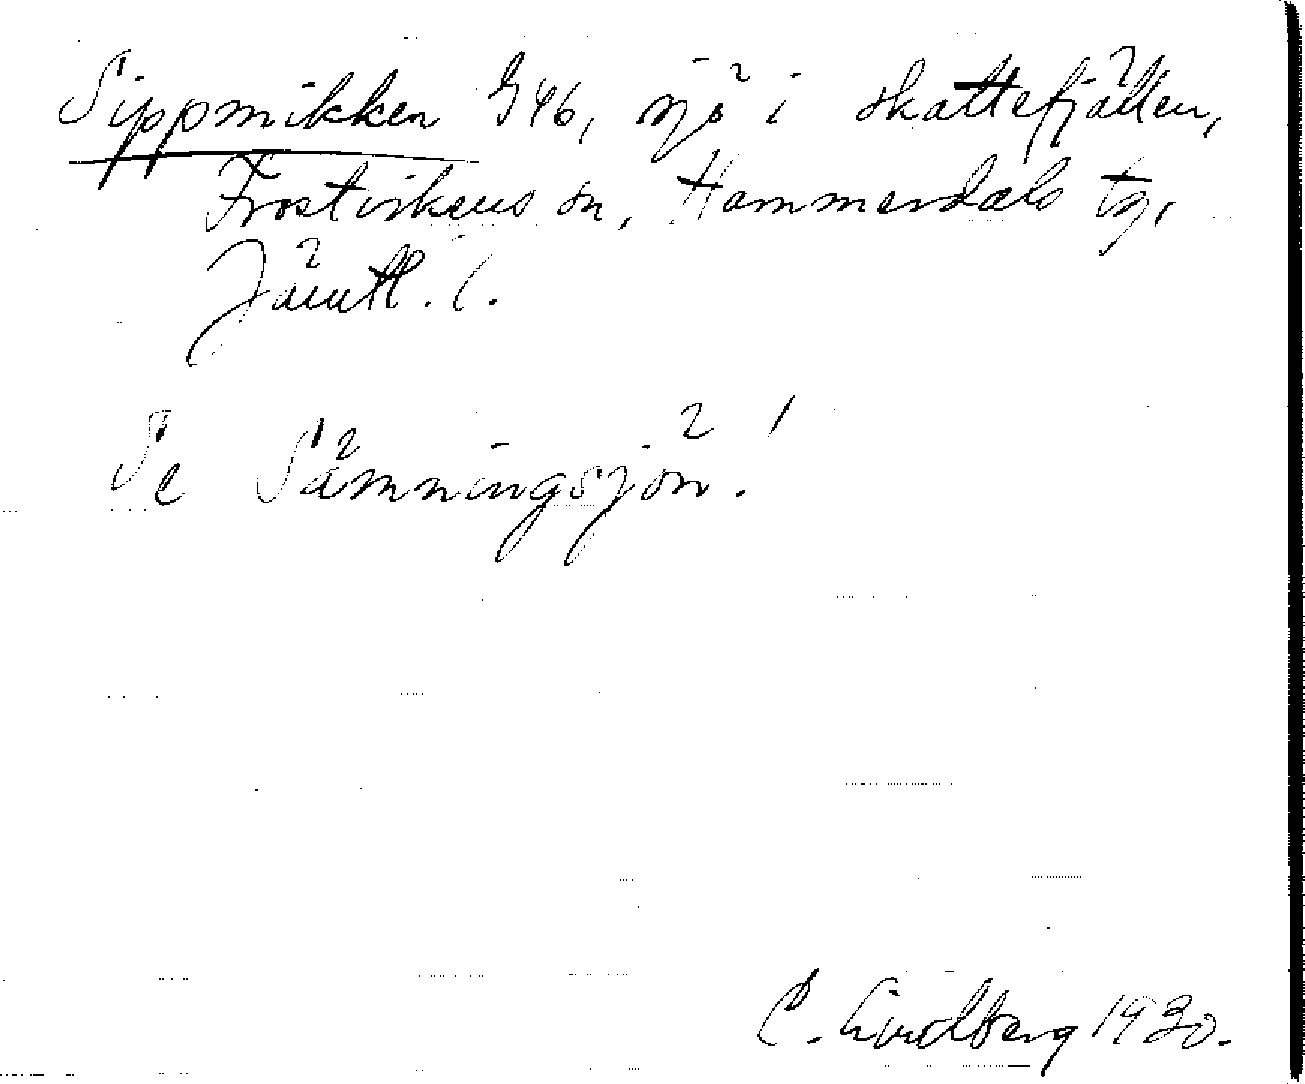 Sippmikken G46, sjö i skattefjällen,
Frostvikens sn, Hammerdals tg,
Jämtl. l.
Se Sämningsjön!
C. Lindberg 1930.